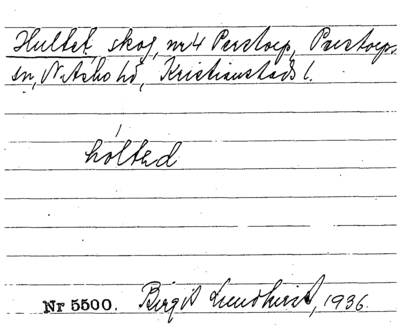 Hultet, skog, nr 4 Perstorp, Perstorps
sn, N. Åsbo hd, Kristianstads l.
hólted
Nr 5500. Birgit Lundkvist, 1936.